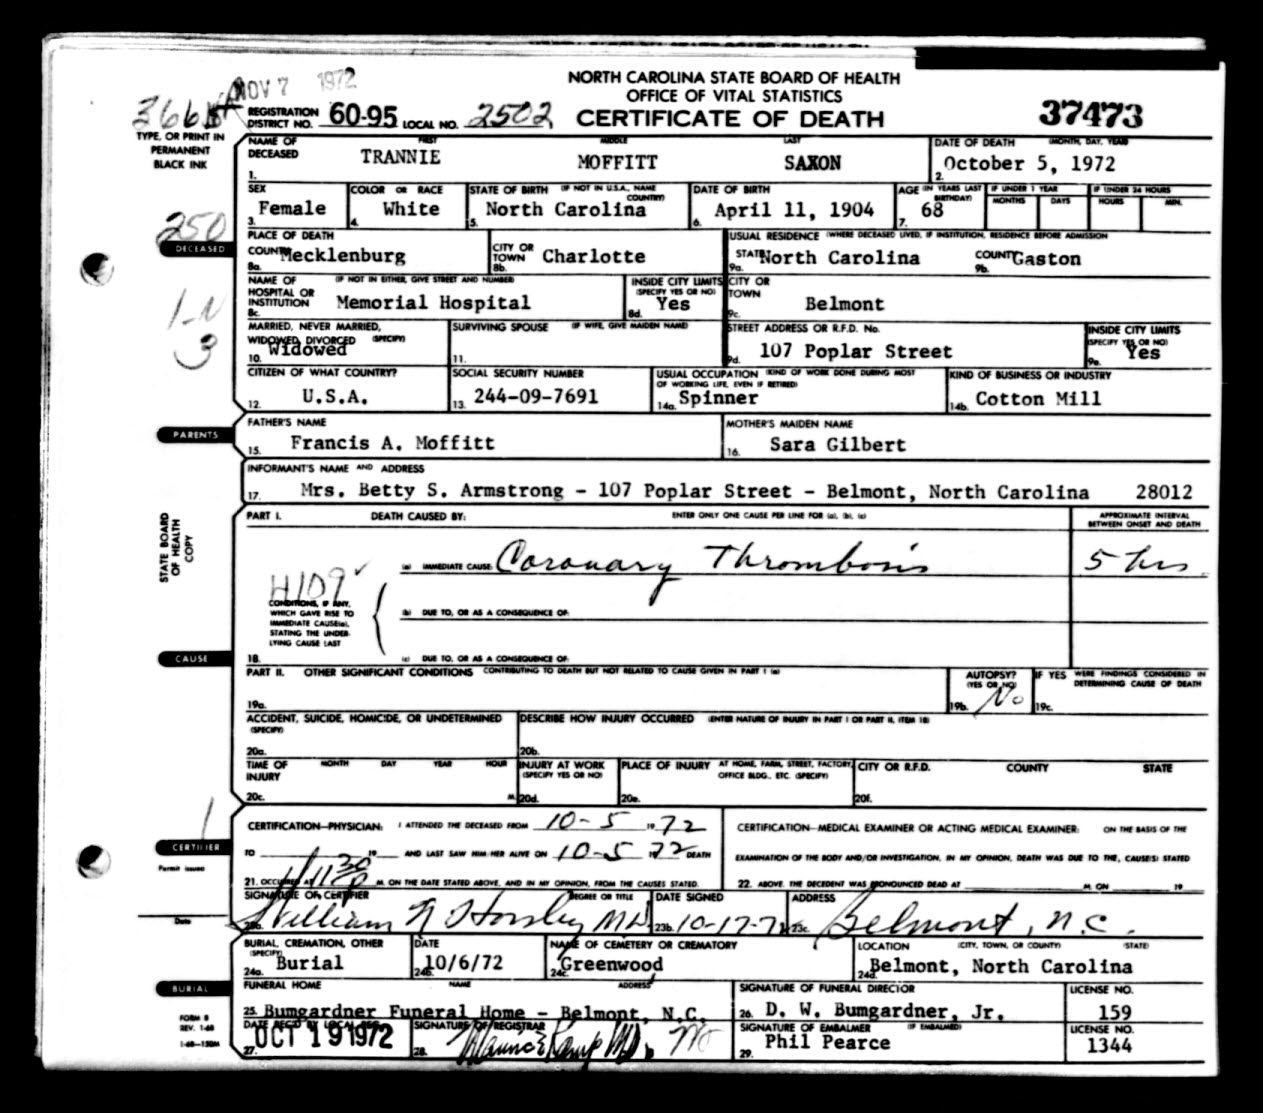 NOV 7 1972
NORTH CAROLINA STATE BOARD OF HEALTH
OFFICE OF VITAL STATISTICS
CERTIFICATE OF DEATH
37473
REGISTRATION DISTRICT NO. 60-95 LOCAL NO. 2502
TYPE, OR PRINT IN
PERMANENT
BLACK INK
NAME OF DECEASED FIRST MIDDLE LAST DATE OF DEATH (MONTH, DAY, YEAR)
1. TRANNIE MOFFITT SAXON 2. October 5, 1972
SEX COLOR OR RACE STATE OF BIRTH (IF NOT IN U.S.A., NAME COUNTRY) DATE OF BIRTH AGE (IN YEARS LAST BIRTHDAY) IF UNDER 1 YEAR MONTHS DAYS IF UNDER 24 HOURS HOURS MIN.
3. Female 4. White 5. North Carolina 6. April 11, 1904 7. 68
250
DECEASED
PLACE OF DEATH USUAL RESIDENCE (WHERE DECEASED LIVED, IF INSTITUTION, RESIDENCE BEFORE ADMISSION
8a. COUNTY Mecklenburg 8b. CITY OR TOWN Charlotte 9a. STATE North Carolina 9b. COUNTY Gaston
NAME OF HOSPITAL OR INSTITUTION (IF NOT IN EITHER, GIVE STREET AND NUMBER) INSIDE CITY LIMITS (SPECIFY YES OR NO) CITY OR TOWN
8c. Memorial Hospital 8d. Yes 9c. Belmont
1-N
3
MARRIED, NEVER MARRIED, WIDOWED, DIVORCED (SPECIFY) SURVIVING SPOUSE (IF WIFE, GIVE MAIDEN NAME) STREET ADDRESS OR R.F.D. No. INSIDE CITY LIMITS (SPECIFY YES OR NO)
10. Widowed 11. 9d. 107 Poplar Street 9e. Yes
CITIZEN OF WHAT COUNTRY? SOCIAL SECURITY NUMBER USUAL OCCUPATION (KIND OF WORK DONE DURING MOST OF WORKING LIFE, EVEN IF RETIRED) KIND OF BUSINESS OR INDUSTRY
12. U.S.A. 13. 244-09-7691 14a. Spinner 14b. Cotton Mill
PARENTS
FATHER'S NAME MOTHER'S MAIDEN NAME
15. Francis A. Moffitt 16. Sara Gilbert
INFORMANT'S NAME AND ADDRESS
17. Mrs. Betty S. Armstrong - 107 Poplar Street - Belmont, North Carolina 28012
STATE BOARD
OF HEALTH
COPY
PART I. DEATH CAUSED BY: ENTER ONLY ONE CAUSE PER LINE FOR (a), (b), (c) APPROXIMATE INTERVAL BETWEEN ONSET AND DEATH
(a) IMMEDIATE CAUSE: Coronary Thrombosis 5 hrs.
H109
CONDITIONS, IF ANY,
WHICH GAVE RISE TO
IMMEDIATE CAUSE(a),
STATING THE UNDER-
LYING CAUSE LAST
(b) DUE TO, OR AS A CONSEQUENCE OF:
CAUSE
18. (c) DUE TO, OR AS A CONSEQUENCE OF:
PART II. OTHER SIGNIFICANT CONDITIONS CONTRIBUTING TO DEATH BUT NOT RELATED TO CAUSE GIVEN IN PART I (a) AUTOPSY? (YES OR NO) IF YES WERE FINDINGS CONSIDERED IN DETERMINING CAUSE OF DEATH
19a. 19b. No 19c.
ACCIDENT, SUICIDE, HOMICIDE, OR UNDETERMINED (SPECIFY) DESCRIBE HOW INJURY OCCURRED (ENTER NATURE OF INJURY IN PART I OR PART II, ITEM 18)
20a. 20b.
TIME OF INJURY MONTH DAY YEAR HOUR INJURY AT WORK (SPECIFY YES OR NO) PLACE OF INJURY AT HOME, FARM, STREET, FACTORY, OFFICE BLDG., ETC. (SPECIFY) CITY OR R.F.D. COUNTY STATE
20c. M. 20d. 20e. 20f.
1
CERTIFICATION—PHYSICIAN: I ATTENDED THE DECEASED FROM 10-5 19 72 CERTIFICATION—MEDICAL EXAMINER OR ACTING MEDICAL EXAMINER: ON THE BASIS OF THE
CERTIFIER
TO 19 AND LAST SAW HIM HER ALIVE ON 10-5 1972 DEATH EXAMINATION OF THE BODY AND/OR INVESTIGATION, IN MY OPINION, DEATH WAS DUE TO THE, CAUSE(S) STATED
Permit issued
21. OCCURRED AT 11:30 M. ON THE DATE STATED ABOVE, AND IN MY OPINION, FROM THE CAUSES STATED. 22. ABOVE. THE DECEDENT WAS PRONOUNCED DEAD AT M. ON 19
SIGNATURE OF CERTIFIER DEGREE OR TITLE DATE SIGNED ADDRESS
Date
William N Horsley M.D. 23b. 10-17-7 23c. Belmont, N.C.
BURIAL, CREMATION, OTHER (SPECIFY) DATE NAME OF CEMETERY OR CREMATORY LOCATION (CITY, TOWN, OR COUNTY) (STATE)
24a. Burial 24b. 10/6/72 24c. Greenwood 24d. Belmont, North Carolina
BURIAL
FUNERAL HOME NAME ADDRESS SIGNATURE OF FUNERAL DIRECTOR LICENSE NO.
25. Bumgardner Funeral Home - Belmont, N.C. 26. D. W. Bumgardner, Jr. 159
FORM 8
REV. 1-68
1-68—150M
DATE REC'D BY LOCAL REG. SIGNATURE OF REGISTRAR SIGNATURE OF EMBALMER (IF EMBALMED) LICENSE NO.
27. OCT 19 1972 28. 29. Phil Pearce 1344